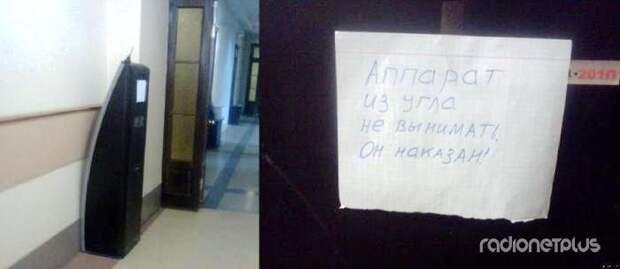 Аппарат
из угла
не вынимать!
Он наказан!
•201П
radionetplus